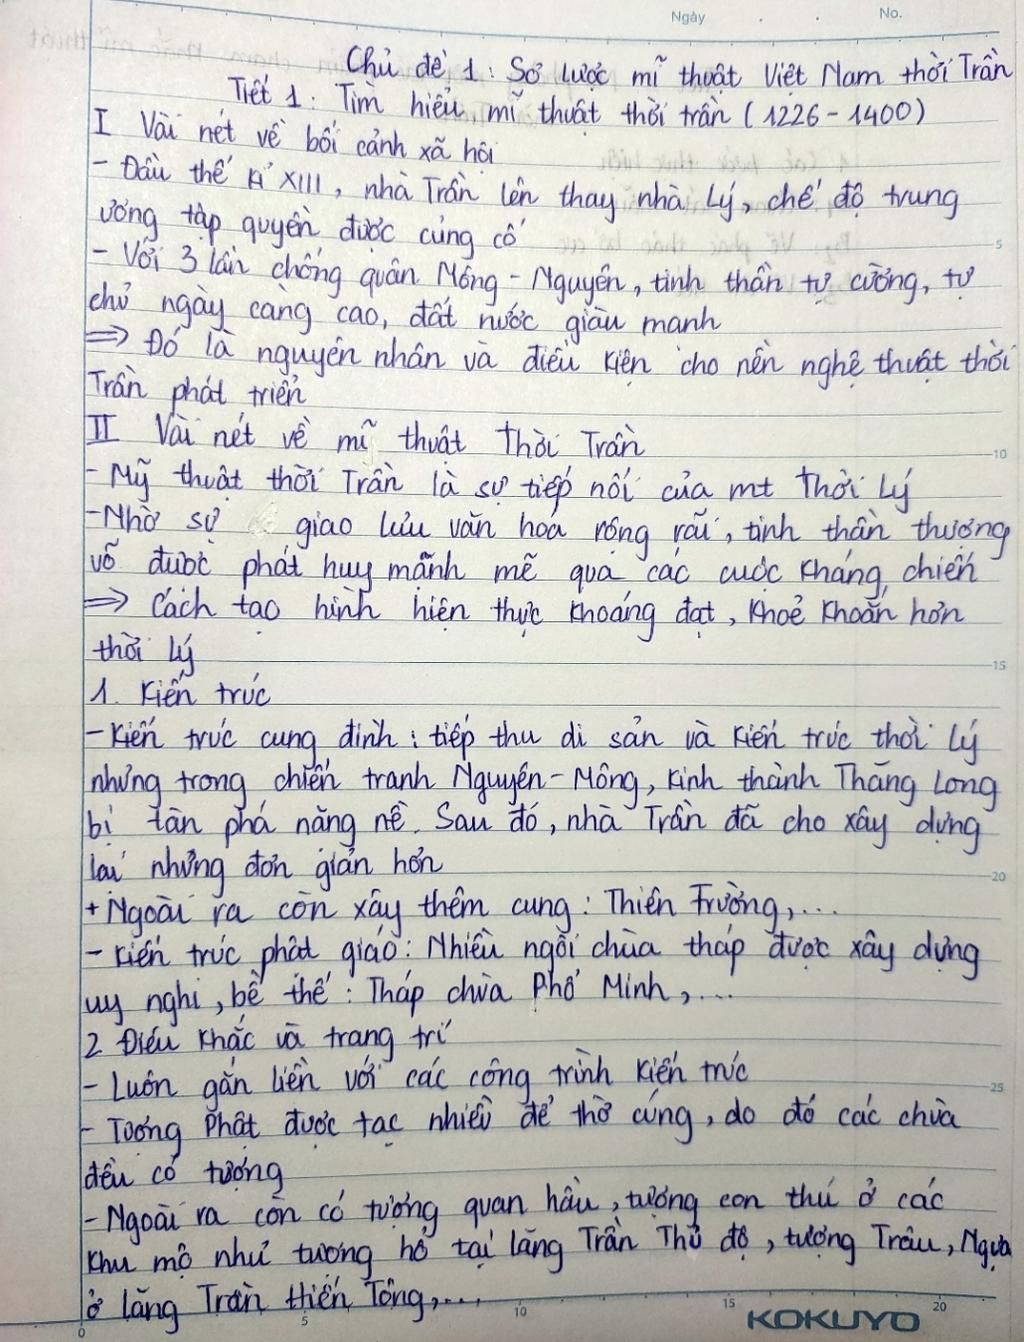 Ngày
No.
Chủ đề 1: Sơ lược mĩ thuật Việt Nam thời Trần
Tiết 1: Tìm hiểu mĩ thuật thời trần (1226-1400)
I Vài nét về bối cảnh xã hội
- Đầu thế kỉ XIII, nhà Trần lên thay nhà Lý, chế độ trung
ương tập quyền được củng cố
5
- Với 3 lần chống quân Mông - Nguyên, tinh thần tự cường, tự
chủ ngày càng cao, đất nước giàu mạnh
=> Đó là nguyên nhân và điều kiện cho nền nghệ thuật thời
Trần phát triển
II Vài nét về mĩ thuật Thời Trần
10
- Mỹ thuật thời Trần là sự tiếp nối của mt Thời Lý
- Nhờ sự giao lưu văn hoá rộng rãi, tinh thần thượng
võ được phát huy mãnh mẽ qua các cuộc kháng chiến
=> Cách tạo hình hiện thực khoáng đạt, khoẻ khoắn hơn
thời Lý
15
1. Kiến trúc
- Kiến trúc cung đình: tiếp thu di sản và kiến trúc thời Lý
nhưng trong chiến tranh Nguyên - Mông, kinh thành Thăng Long
bị tàn phá nặng nề. Sau đó, nhà Trần đã cho xây dựng
lại nhưng đơn giản hơn
20
+ Ngoài ra còn xây thêm cung: Thiên Trường,...
- Kiến trúc phật giáo: Nhiều ngôi chùa tháp được xây dựng
uy nghi, bề thế: Tháp chùa Phổ Minh,...
2 Điêu khắc và trang trí
- Luôn gắn liền với các công trình kiến trúc
25
- Tượng Phật được tạc nhiều để thờ cúng, do đó các chùa
đều có tượng
- Ngoài ra còn có tượng quan hầu, tượng con thú ở các
khu mộ như tượng hổ tại lăng Trần Thủ độ, tượng Trâu, Ngựa
ở lăng Trần Hiến Tông,...
0 5 10 15 20
KOKUYO